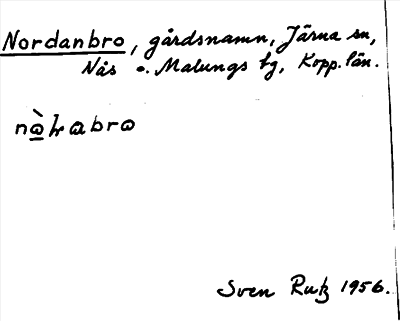 Nordanbro, gårdsnamn, Järna sn,
Nås o. Malungs tg, Kopp. län.
Sven Rutz 1956.